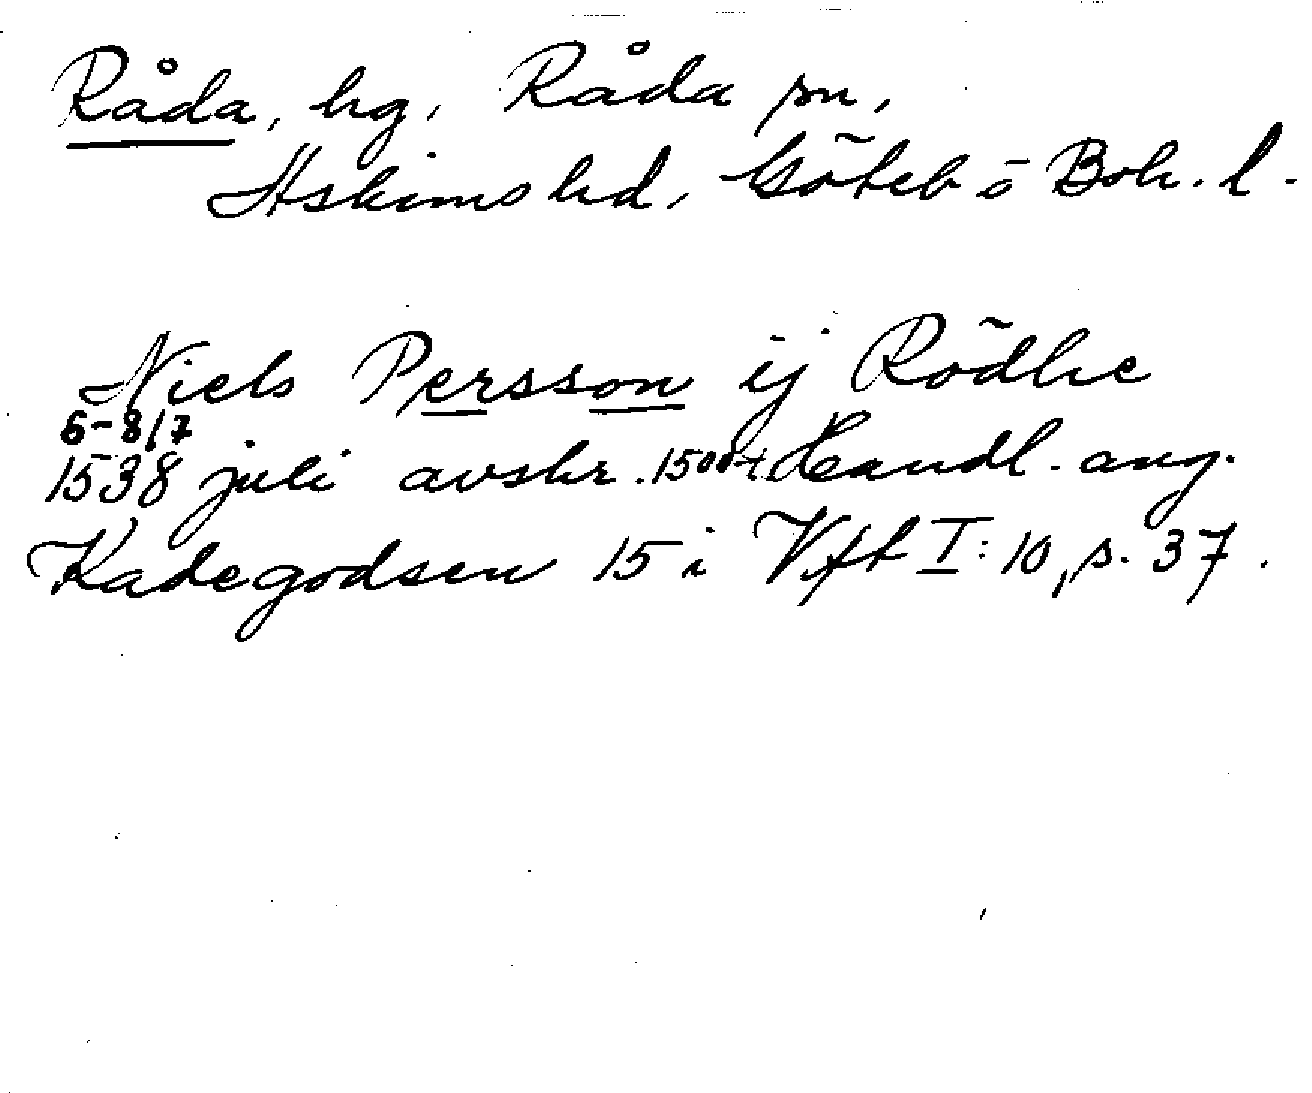 Råda, hg, Råda sn,
Askims hd, Göteb ō Boh. l.
Niels Persson ij Rödhe
6-8/7
1538 juli avskr. 1500-t. Handl. ang.
Kadegodsen 15 i Vft I: 10, s. 37.